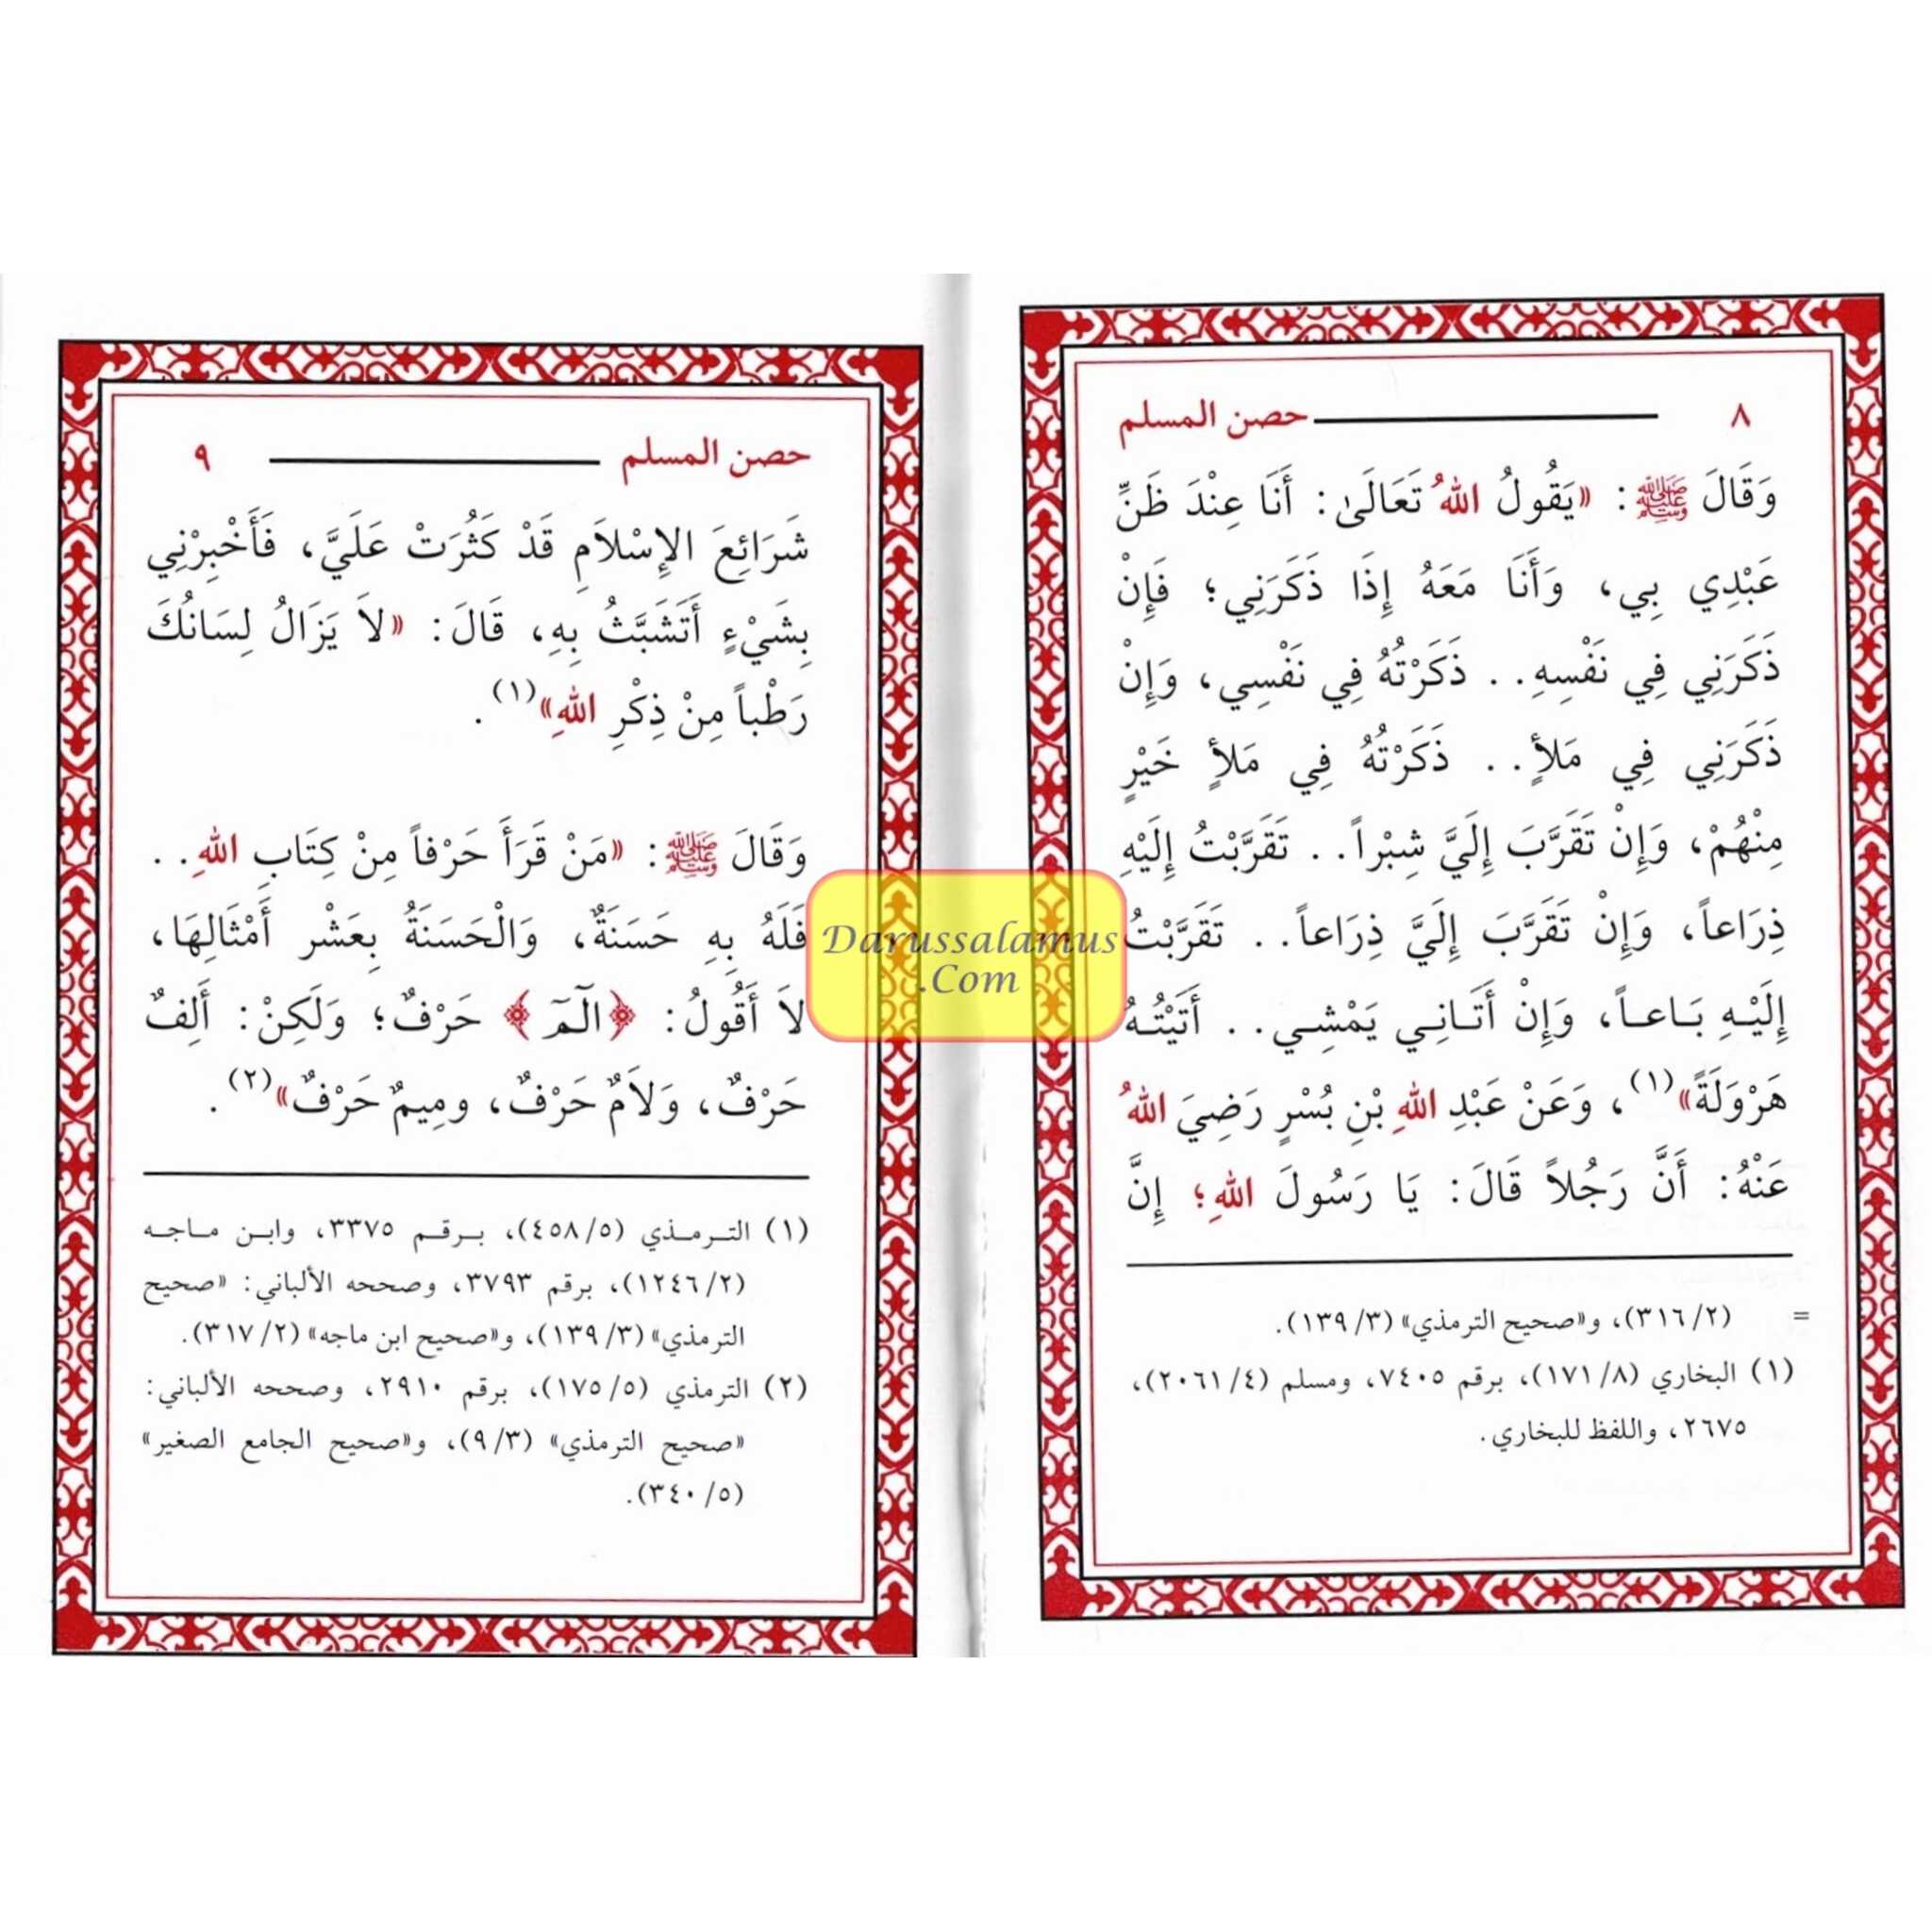 ٨ حصن المسلم
وَقَالَ ﷺ: «يَقُولُ اللهُ تَعَالَىٰ: أَنَا عِنْدَ ظَنِّ
عَبْدِي بِي، وَأَنَا مَعَهُ إِذَا ذَكَرَنِي؛ فَإِنْ
ذَكَرَنِي فِي نَفْسِهِ.. ذَكَرْتُهُ فِي نَفْسِي، وَإِنْ
ذَكَرَنِي فِي مَلأٍ.. ذَكَرْتُهُ فِي مَلأٍ خَيْرٍ
مِنْهُمْ، وَإِنْ تَقَرَّبَ إِلَيَّ شِبْراً.. تَقَرَّبْتُ إِلَيْهِ
ذِرَاعاً، وَإِنْ تَقَرَّبَ إِلَيَّ ذِرَاعاً.. تَقَرَّبْتُ
إِلَيْهِ بَاعاً، وَإِنْ أَتَانِي يَمْشِي.. أَتَيْتُهُ
هَرْوَلَةً»(١)، وَعَنْ عَبْدِ اللهِ بْنِ بُسْرٍ رَضِيَ اللهُ
عَنْهُ: أَنَّ رَجُلاً قَالَ: يَا رَسُولَ اللهِ؛ إِنَّ
= (٣١٦/٢)، و«صحيح الترمذي» (١٣٩/٣).
(١) البخاري (١٧١/٨)، برقم ٧٤٠٥، ومسلم (٢٠٦١/٤)،
٢٦٧٥، واللفظ للبخاري.
حصن المسلم ٩
شَرَائِعَ الإِسْلاَمِ قَدْ كَثُرَتْ عَلَيَّ، فَأَخْبِرْنِي
بِشَيْءٍ أَتَشَبَّثُ بِهِ، قَالَ: «لاَ يَزَالُ لِسَانُكَ
رَطْباً مِنْ ذِكْرِ اللهِ»(١).
وَقَالَ ﷺ: «مَنْ قَرَأَ حَرْفاً مِنْ كِتَابِ اللهِ..
فَلَهُ بِهِ حَسَنَةٌ، وَالْحَسَنَةُ بِعَشْرِ أَمْثَالِهَا،
لاَ أَقُولُ: ﴿الٓمٓ﴾ حَرْفٌ؛ وَلَكِنْ: أَلِفٌ
حَرْفٌ، وَلاَمٌ حَرْفٌ، ومِيمٌ حَرْفٌ»(٢).
(١) الترمذي (٤٥٨/٥)، برقم ٣٣٧٥، وابن ماجه
(١٢٤٦/٢)، برقم ٣٧٩٣، وصححه الألباني: «صحيح
الترمذي» (١٣٩/٣)، و«صحيح ابن ماجه» (٣١٧/٢).
(٢) الترمذي (١٧٥/٥)، برقم ٢٩١٠، وصححه الألباني:
«صحيح الترمذي» (٩/٣)، و«صحيح الجامع الصغير»
(٣٤٠/٥).
Darussalamus
.Com